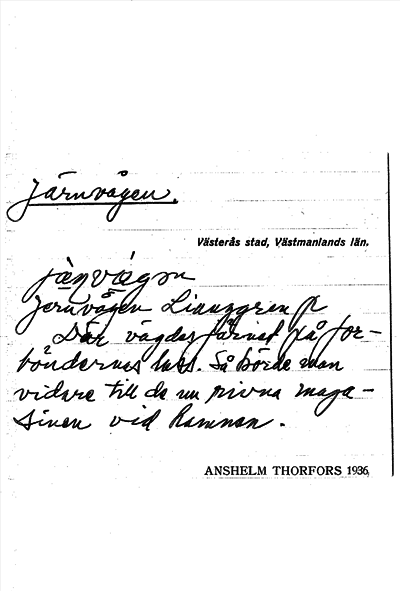 Järnvågen.
Västerås stad, Västmanlands län.
Jernvågen Linungren
Där vägdes järnet på for-
böndernas lass. Så körde man
vidare till de nu rivna maga-
sinen vid hamnen.
ANSHELM THORFORS 1936